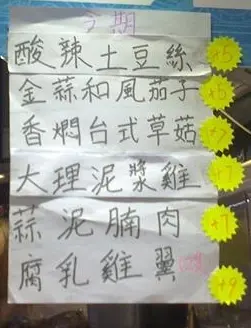 今期
酸辣土豆絲 +5
金蒜和風茄子 +5
香燜台式草菇 +7
大理泥漿雞 +7
蒜泥腩肉 +7
腐乳雞翼 +9